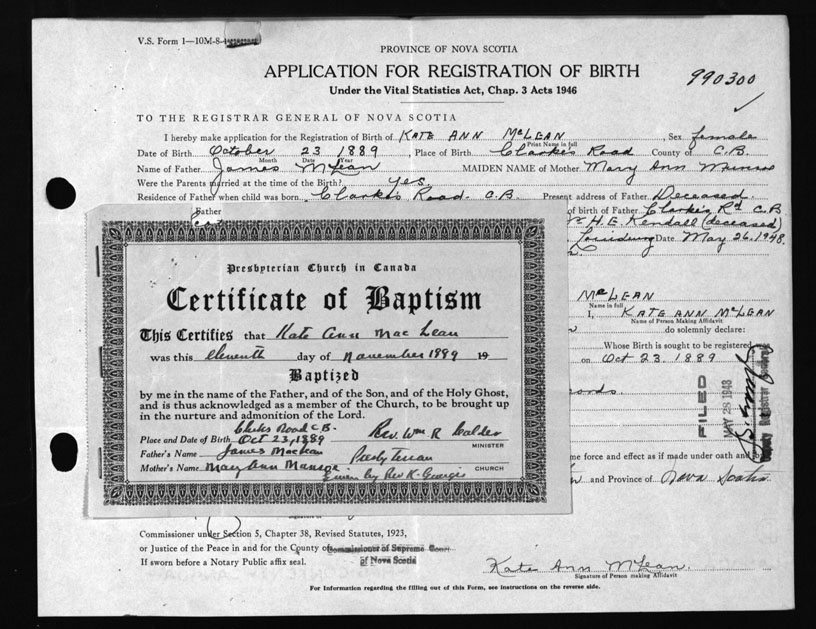 V.S. Form 1—10M-8-
PROVINCE OF NOVA SCOTIA
APPLICATION FOR REGISTRATION OF BIRTH
990300
Under the Vital Statistics Act, Chap. 3 Acts 1946
TO THE REGISTRAR GENERAL OF NOVA SCOTIA
I hereby make application for the Registration of Birth of KATE ANN McLEAN, Sex female
Print Name in full
Date of Birth October 23 1889, Place of Birth Clarke's Road County of C.B.
Month Date Year
Name of Father James McLean MAIDEN NAME of Mother Mary Ann Munroe
Were the Parents married at the time of the Birth? yes
Residence of Father when child was born Clarke's Road. C.B. Present address of Father Deceased.
Father of birth of Father Clarke's Rd C.B
H. E. Kendall (deceased)
Louisburg Date May 26. 1948.
McLEAN
Name in full
I, KATE ANN McLEAN
Name of Person Making Affidavit
do solemnly declare:
Whose Birth is sought to be registered
on Oct 23. 1889
FILED
MAY 28 1948
me force and effect as if made under oath and by
and Province of Nova Scotia
Presbyterian Church in Canada
Certificate of Baptism
This Certifies that Kate Ann Mac Lean
was this eleventh day of November 1889 19
Baptized
by me in the name of the Father, and of the Son, and of the Holy Ghost,
and is thus acknowledged as a member of the Church, to be brought up
in the nurture and admonition of the Lord.
Clarkes Road C.B.
Place and Date of Birth Oct 23, 1889 Rev. Wm R Calder
MINISTER
Father's Name James MacLean Presbyterian
Mother's Name Mary Ann CHURCH
Given by Rev K. George
Commissioner under Section 5, Chapter 38, Revised Statutes, 1923,
or Justice of the Peace in and for the County of Commissioner of Supreme Court
of Nova Scotia
If sworn before a Notary Public affix seal.
Kate Ann McLean.
Signature of Person making Affidavit
For Information regarding the filling out of this Form, see instructions on the reverse side.